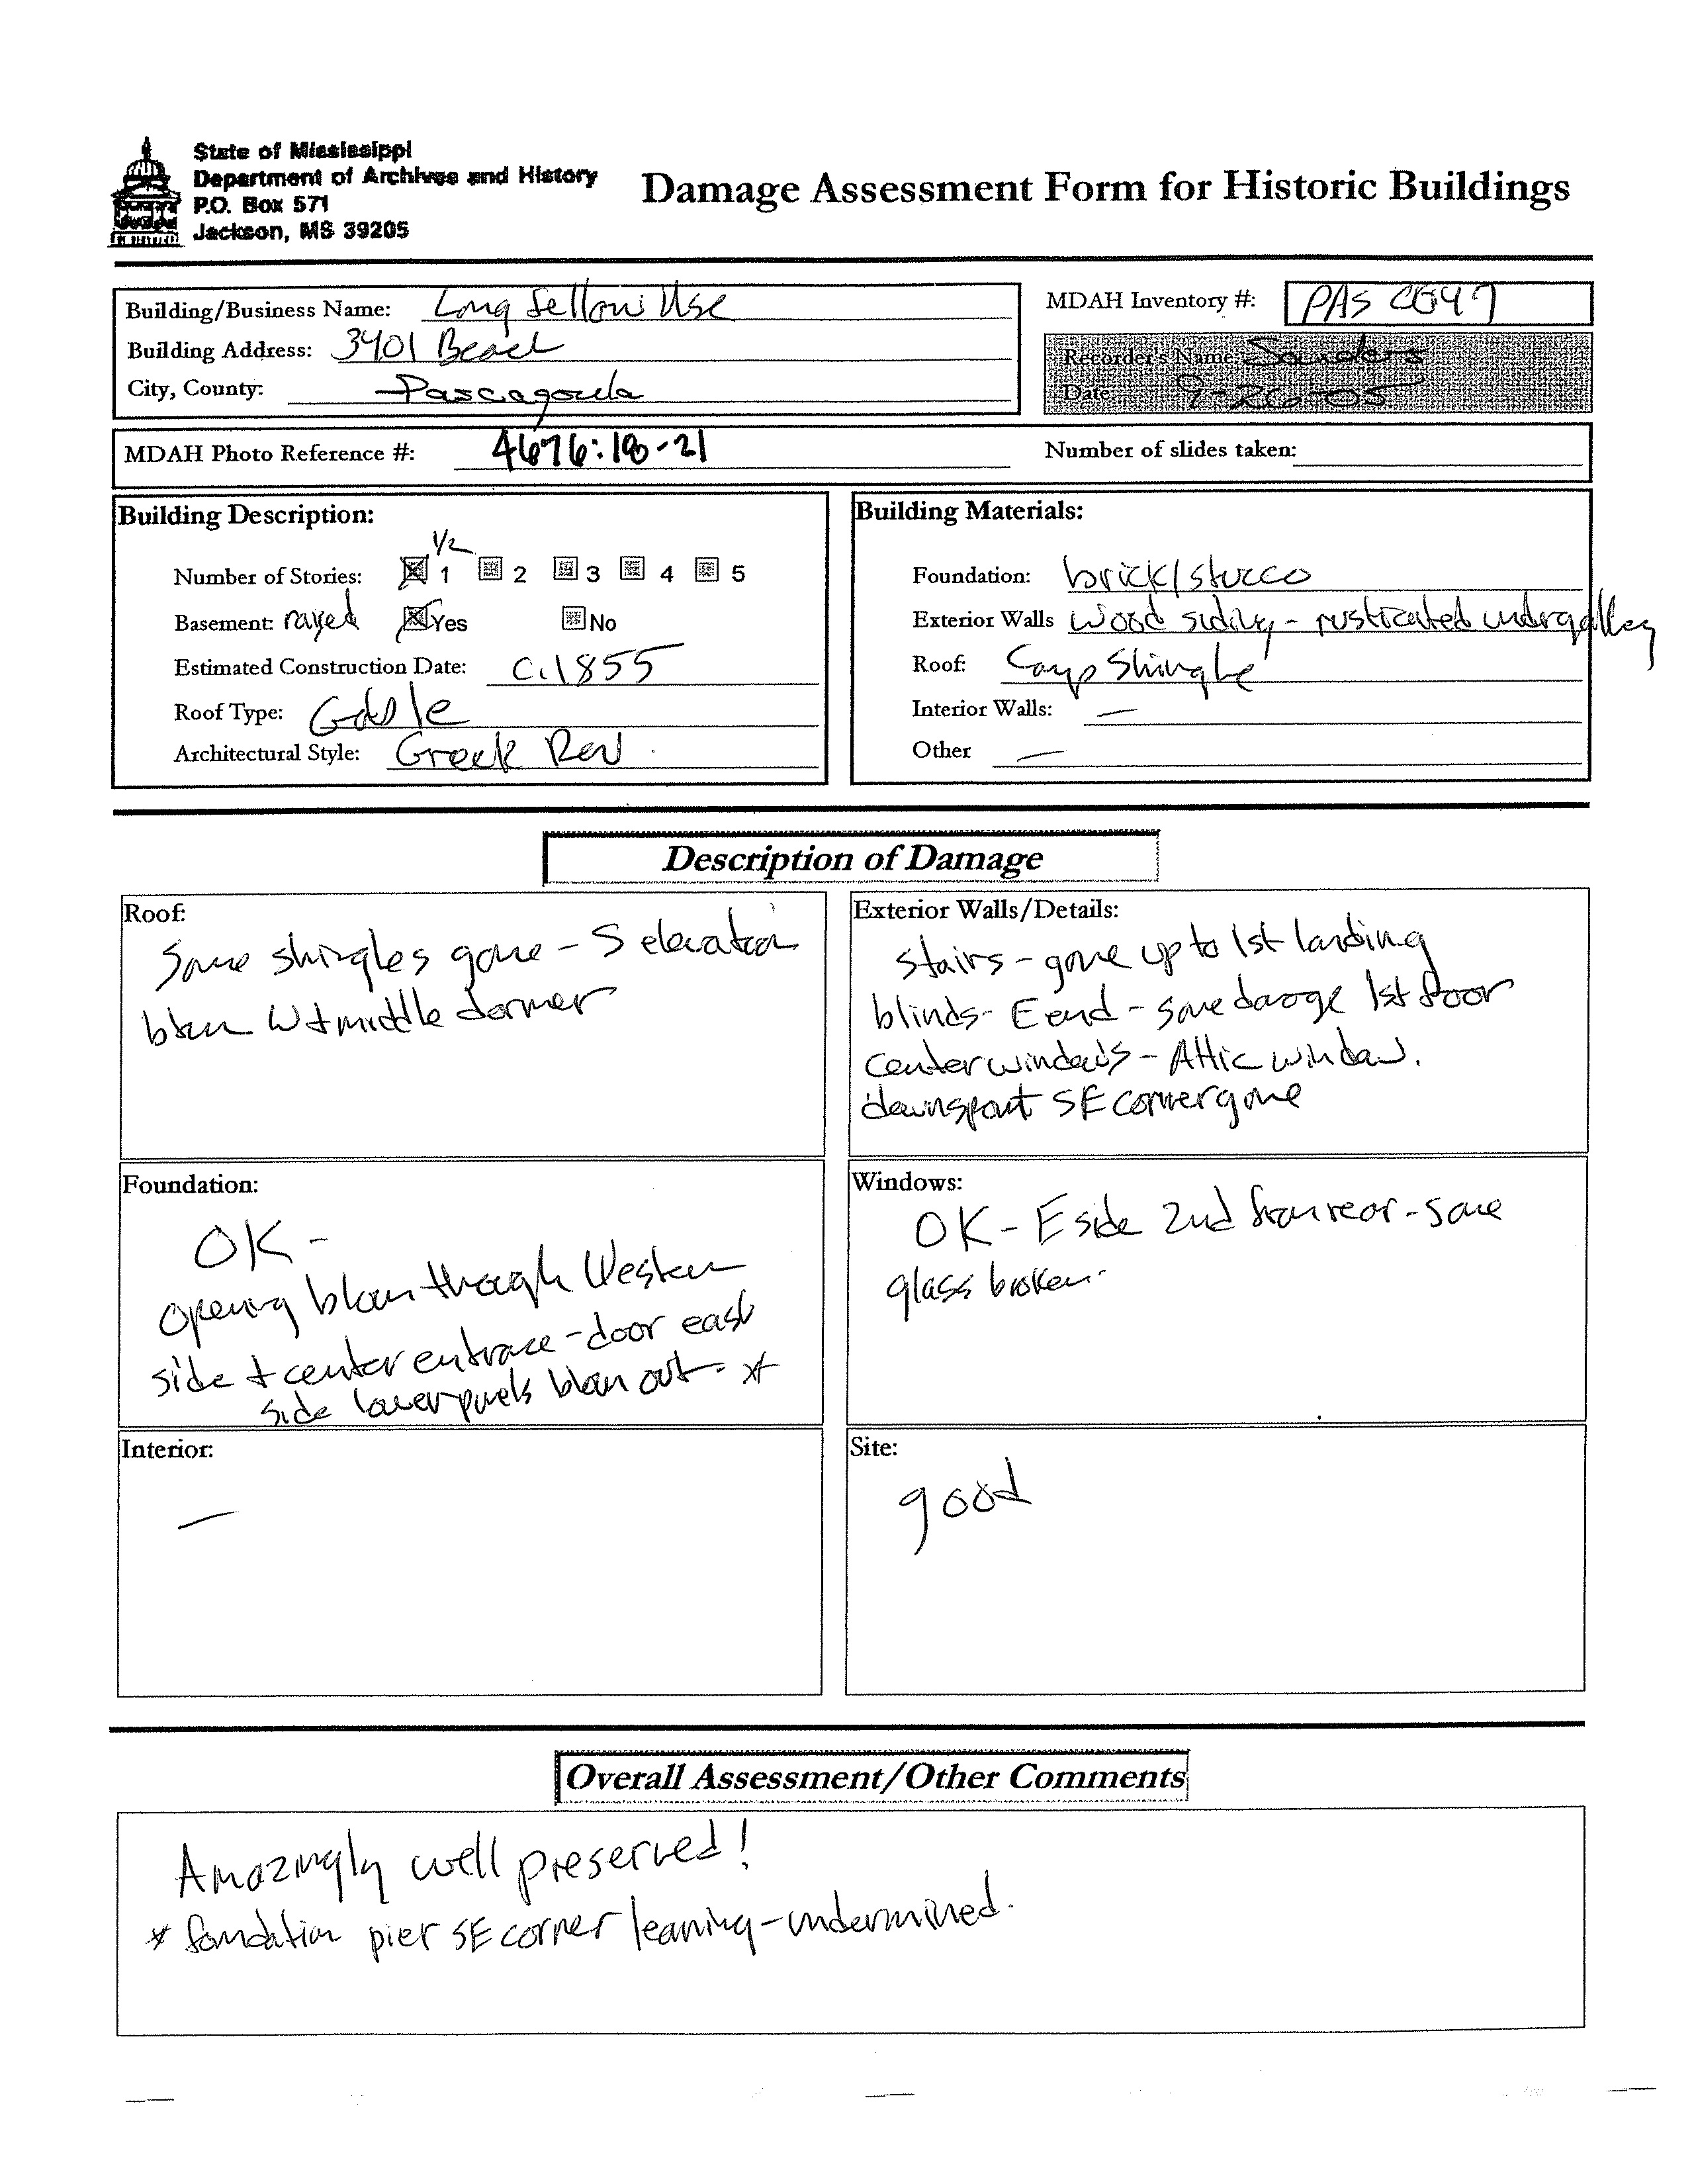 State of Mississippi
Department of Archives and History
P.O. Box 571
Jackson, MS 39205
Damage Assessment Form for Historic Buildings
Building/Business Name: Longfellow Hse
Building Address: 3401 Beach
City, County: Pascagoula
MDAH Inventory #: PAS
Recorder's Name Saunders
Date 9-26-05
MDAH Photo Reference #: 4676:18-21
Number of slides taken:
Building Description:
1/2
Number of Stories: 1 2 3 4 5
Basement: raised Yes No
Estimated Construction Date: c.1855
Roof Type: Gable
Architectural Style: Greek Rev.
Building Materials:
Foundation: brick/stucco
Exterior Walls Wood siding - rusticated undergallery
Roof: Comp Shingle
Interior Walls: —
Other —
Description of Damage
Roof:
Some shingles gone - S elevation
blown W + middle dormer
Exterior Walls/Details:
stairs - gone up to 1st landing
blinds - E end - some damage 1st floor
center windows - Attic window.
downspout SE corner gone
Foundation:
OK -
opening blown through Western
side + center entrace - door east
side lower panels blown out - *
Windows:
OK - E side 2nd from rear - some
glass broken.
Interior:
—
Site:
good
Overall Assessment/Other Comments
Amazingly well preserved!
* foundation pier SE corner leaning - undermined.